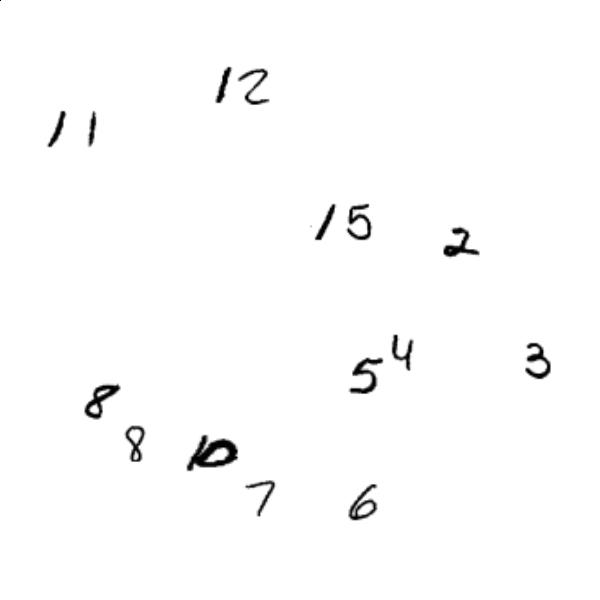 12
11
15
2
4
5
3
8
8
10
7
6